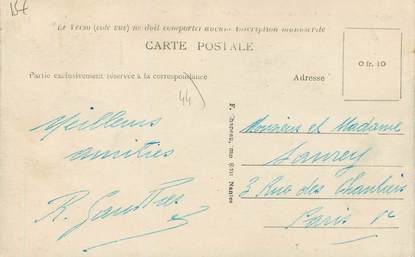 Le Verso (côté vue) ne doit comporter aucune inscription manuscrite
CARTE POSTALE
Partie exclusivement réservée à la correspondance
Adresse
0 fr. 10
44
Meilleurs
amitiés
Monsieur et Madame
3 Rue des Chantiers
Paris
Nantes